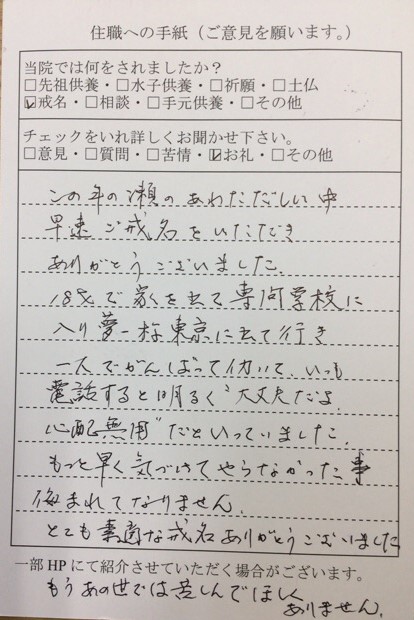 住職への手紙（ご意見を願います。）
当院では何をされましたか？
□先祖供養・□水子供養・□祈願・□土仏
☑戒名・□相談・□手元供養・□その他
チェックをいれ詳しくお聞かせ下さい。
□意見・□質問・□苦情・☑お礼・□その他
この年の瀬のあわただしい中
早速ご戒名をいただき
ありがとうございました。
18才で家を出て専門学校に
入り夢一杯東京に出て行き
一人でがんばって働いて、いつも
電話すると明るく“大丈夫だよ、
心配無用”だといっていました。
もっと早く気づけてやらなかった事
悔まれてなりません。
とても素適な戒名ありがとうございました
一部HPにて紹介させていただく場合がございます。
もうあの世では苦しんでほしく
ありません。